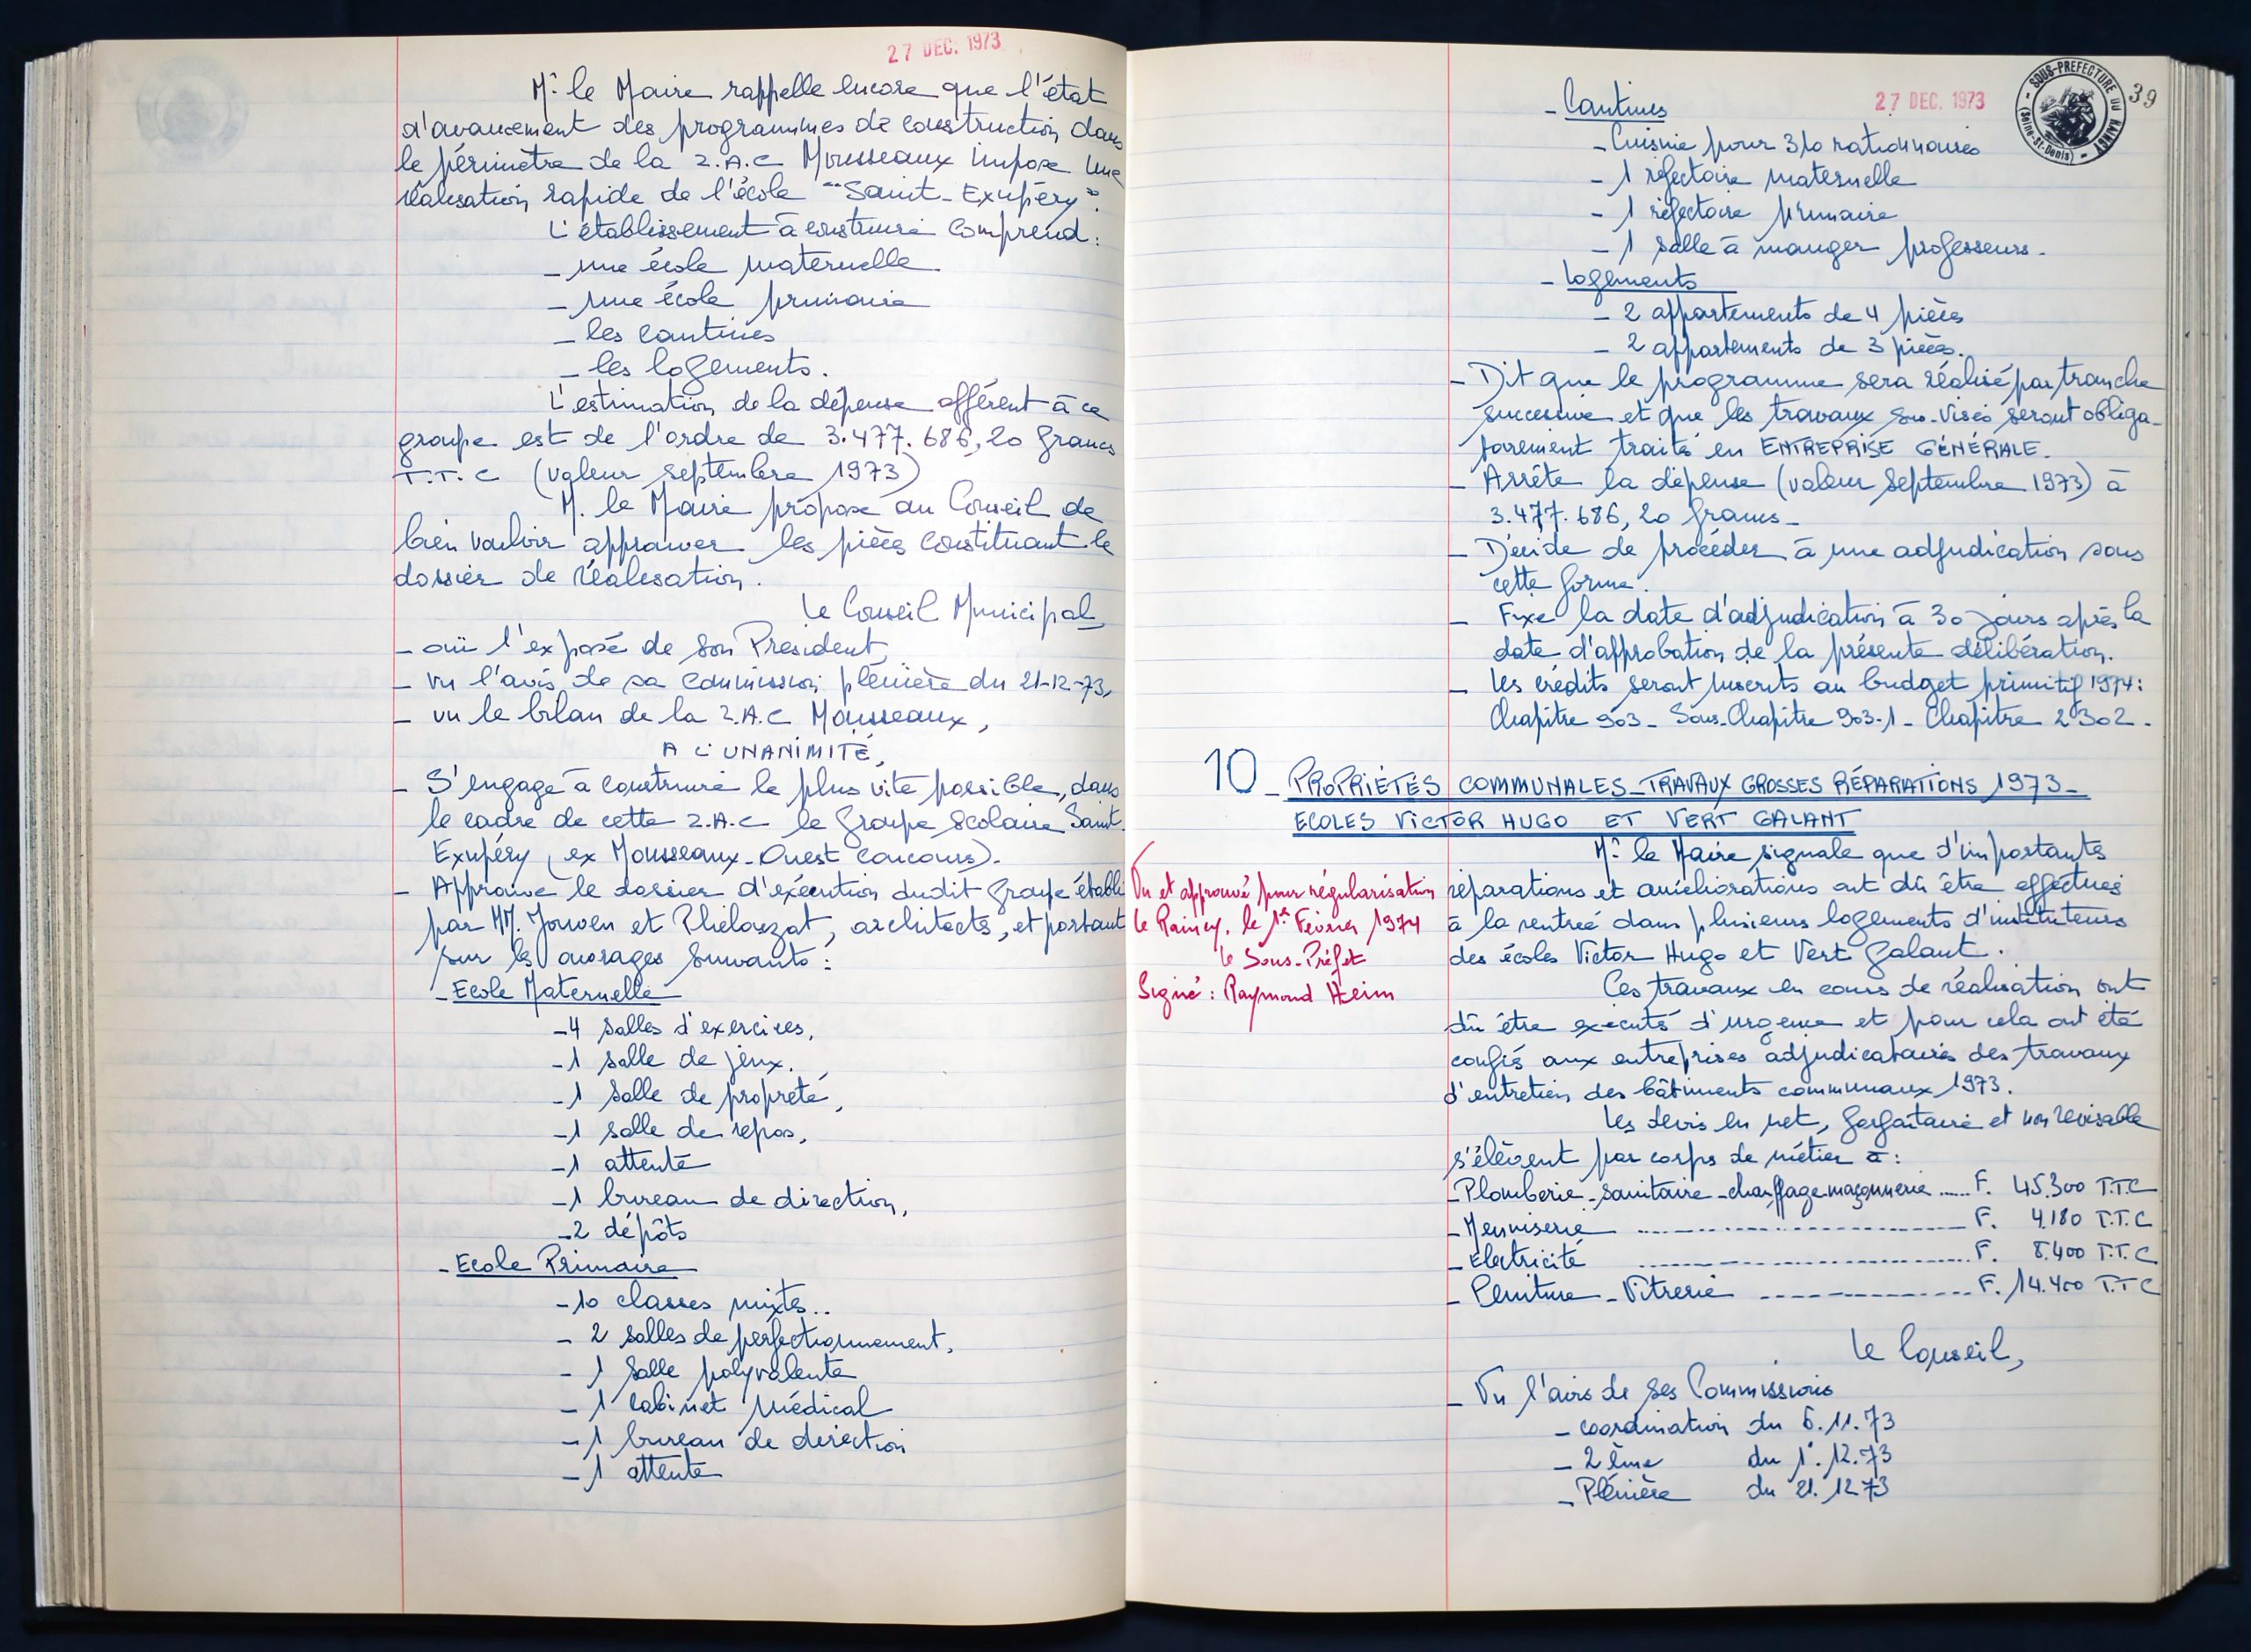 27 DEC. 1973
Mr le Maire rappelle encore que l'état
d'avancement des programmes de construction dans
le périmètre de la Z.A.C Mousseaux impose une
réalisation rapide de l'école "Saint-Exupéry".
L'établissement à construire comprend :
- une école maternelle
- une école primaire
- les cantines
- les logements.
L'estimation de la dépense afférent à ce
groupe est de l'ordre de 3.477.686,20 francs
T.T.C (valeur septembre 1973)
M. le Maire propose au Conseil de
bien vouloir approuver les pièces constituant le
dossier de réalisation.
Le Conseil Municipal,
- ouï l'exposé de son Président,
- vu l'avis de sa commission plénière du 21-12-73,
- vu le bilan de la Z.A.C Mousseaux,
A L'UNANIMITÉ,
- S'engage à construire le plus vite possible, dans
le cadre de cette Z.A.C le Groupe Scolaire Saint-
Exupéry (ex Mousseaux-Ouest concours).
- Approuve le dossier d'exécution dudit groupe établi
par MM. Jouven et Phélouzat, architects, et portant
sur les ouvrages suivants :
- Ecole Maternelle
- 4 salles d'exercices,
- 1 salle de jeux,
- 1 salle de propreté,
- 1 salle de repos,
- 1 attente
- 1 bureau de direction,
- 2 dépôts
- Ecole Primaire
- 10 classes mixtes..
- 2 salles de perfectionnement,
- 1 salle polyvalente
- 1 cabinet médical
- 1 bureau de direction
- 1 attente
27 DEC. 1973
SOUS-PREFECTURE DU RAINCY
(Seine-St-Denis)
39
- Cantines
- Cuisine pour 310 rationnaires
- 1 réfectoire maternelle
- 1 réfectoire primaire
- 1 salle à manger professeurs.
- Logements
- 2 appartements de 4 pièces
- 2 appartements de 3 pièces.
- Dit que le programme sera réalisé par tranche
successive et que les travaux sus-visés seront obliga-
toirement traités en ENTREPRISE GÉNÉRALE.
- Arrête la dépense (valeur Septembre 1973) à
3.477.686,20 francs -
- Décide de procéder à une adjudication sous
cette forme.
- Fixe la date d'adjudication à 30 jours après la
date d'approbation de la présente délibération.
- Les crédits seront inscrits au budget primitif 1974 :
Chapitre 903 - Sous-Chapitre 903-1 - Chapitre 2302.
10 - PROPRIÉTÉS COMMUNALES - TRAVAUX GROSSES RÉPARATIONS 1973 -
ECOLES VICTOR HUGO ET VERT GALANT
Mr le Maire signale que d'importants
réparations et améliorations ont dû être effectués
à la rentrée dans plusieurs logements d'instituteurs
des écoles Victor Hugo et Vert Galant.
Vu et approuvé pour régularisation
Le Raincy, le 1er Février 1974
le Sous-Préfet
Signé : Raymond Heim
Ces travaux en cours de réalisation ont
dû être exécutés d'urgence et pour cela ont été
confiés aux entreprises adjudicataires des travaux
d'entretien des bâtiments communaux 1973.
Les devis en net, forfaitaire et non revisable
s'élèvent par corps de métier à :
- Plomberie - sanitaire - chauffage maçonnerie ..... F. 45.300 T.T.C
- Menuiserie ..... F. 4.180 T.T.C
- Electricité ..... F. 8.400 T.T.C
- Peinture - Vitrerie ..... F. 14.400 T.T.C
Le Conseil,
- Vu l'avis de ses Commissions
- coordination du 6.11.73
- 2ème du 1°.12.73
- Plénière du 21.12.73